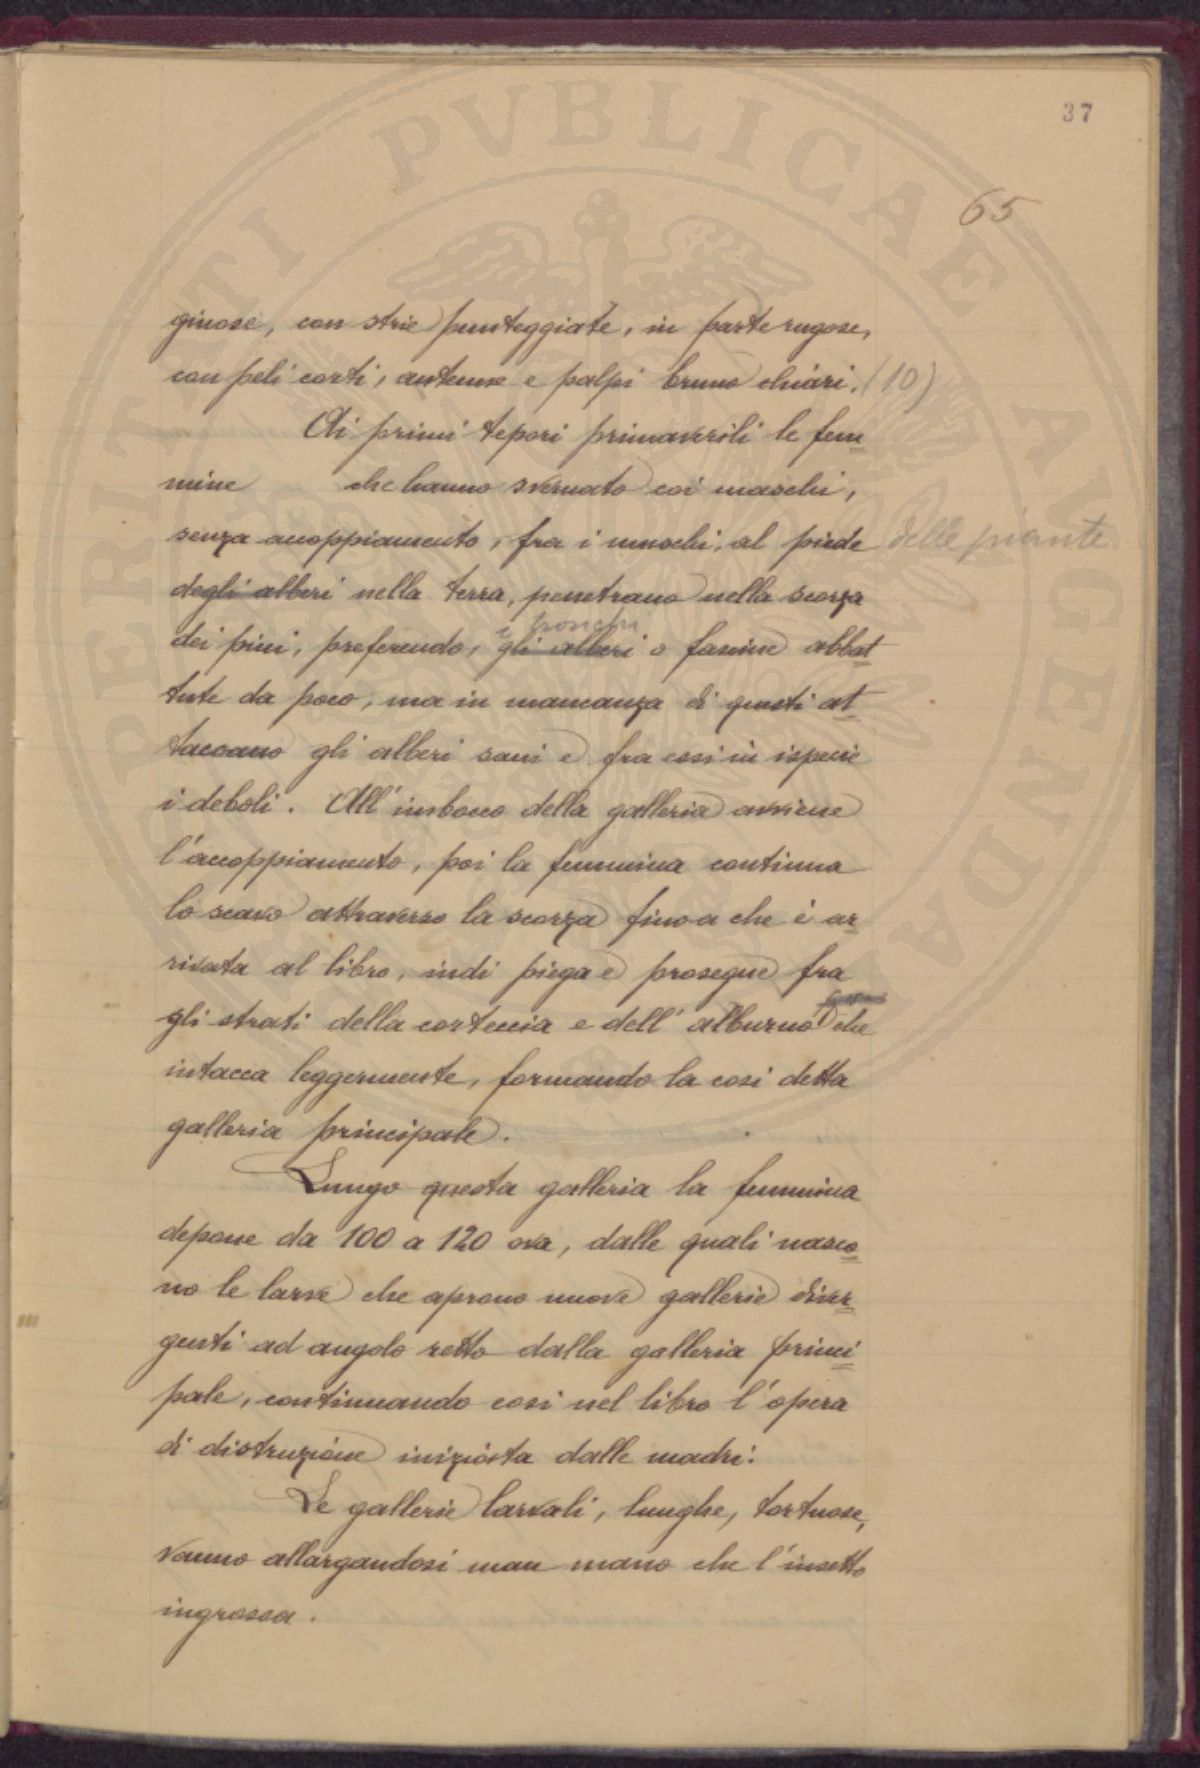 37
65
ginose, con strie punteggiate, in parte rugose,
con peli corti, antenne e palpi bruno chiari. (10)
Ai primi tepori primaverili le fem
mine che hanno svernato coi maschi,
senza accoppiamento, fra i muschi, al piede delle piante
degli alberi nella terra, penetrano nella scorza
i tronchi
dei pini, preferendo, gli alberi o fascine abbat
tute da poco, ma in mancanza di questi at
taccano gli alberi sani e fra essi in ispecie
i deboli. All'imbocco della galleria avviene
l'accoppiamento, poi la femmina continua
lo scavo attraverso la scorza fino a che è ar
rivata al libro, indi piega e prosegue fra
gli strati della corteccia e dell'alburno che
intacca leggermente, formando la cosi detta
galleria principale.
Lungo questa galleria la femmina
depone da 100 a 120 ova, dalle quali nasco
no le larve che aprono nuove gallerie diver
genti ad angolo retto dalla galleria princi
pale, continuando cosi nel libro l'opera
di distruzione iniziata dalle madri.
Le gallerie larvali, lunghe, tortuose,
vanno allargandosi man mano che l'insetto
ingrossa.
PERITI PVBLICAE AVGENDAE